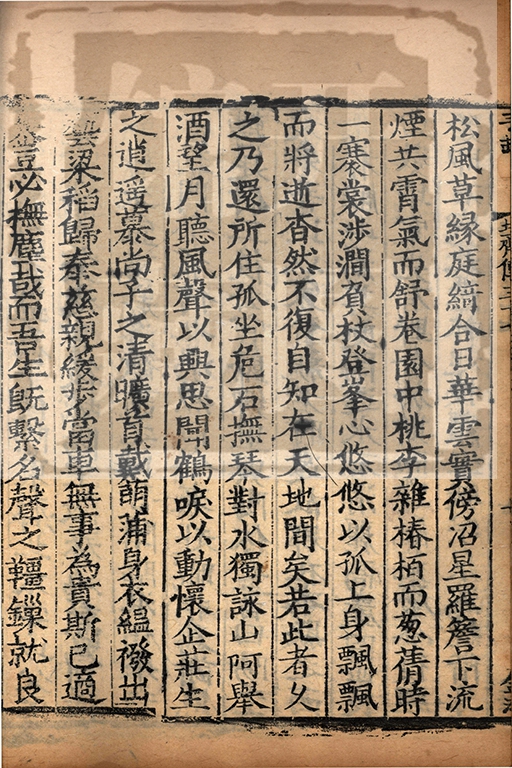 松風草緑庭綺合日華雲實傍沼星羅簷下流
煙共霄氣而舒卷園中桃李雜椿栢而葱蒨時
一褰裳渉澗負杖登峯心悠悠以孤上身飄飄
而將逝杳然不復自知在天地間矣若此者久
之乃還所住孤坐危石撫琴對水獨詠山阿舉
酒望月聽風聲以興思聞鶴唳以動懷企莊生
之逍遥慕尚子之清曠首戴萌蒲身衣縕襏出
藝粱稻歸奉慈親緩步當車無事為貴斯已適
豈必撫塵哉而吾生既繫名聲之韁鏁就良